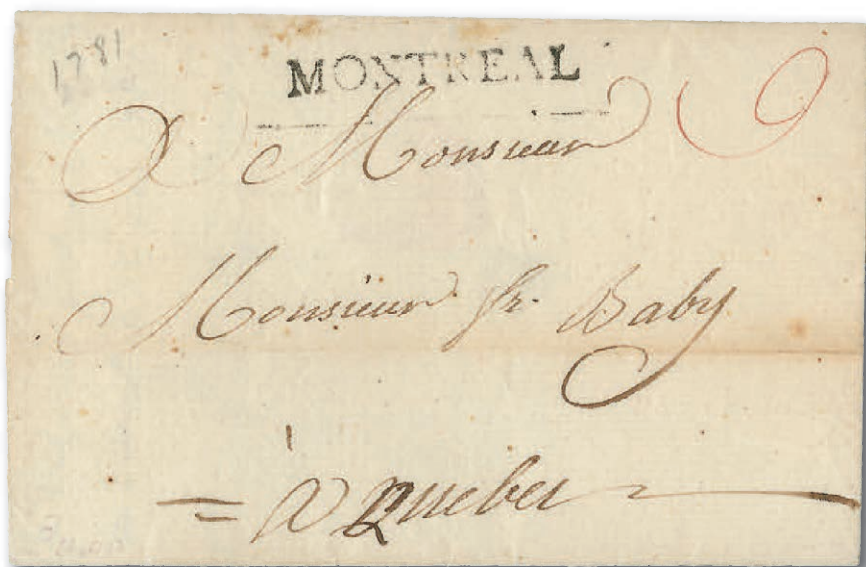 1781
MONTREAL
A Monsieur
Monsieur fr. Baby
à Quebec